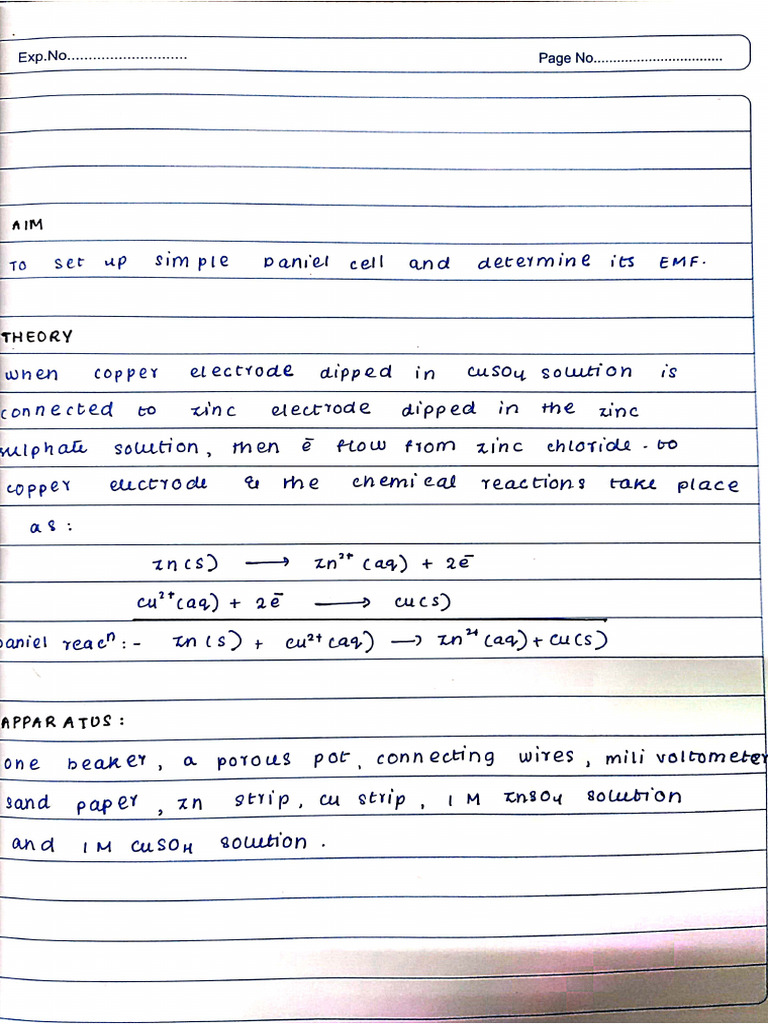 Exp.No............................
Page No.................................
AIM
To set up simple Daniel cell and determine its EMF.
THEORY
when copper electrode dipped in CuSO4 solution is
connected to zinc electrode dipped in the zinc
sulphate solution, then ē flow from zinc chloride. to
copper electrode & the chemical reactions take place
as:
Zn(s) ⟶ Zn²⁺ (aq) + 2ē
Cu²⁺(aq) + 2ē ⟶ Cu(s)
Daniel reacⁿ:- Zn(s) + Cu²⁺(aq) ⟶ Zn²⁺(aq) + Cu(s)
APPARATUS:
one beaker, a porous pot, connecting wires, mili voltometer
sand paper, Zn strip, Cu strip, 1 M ZnSO4 solution
and 1 M CuSO4 solution.